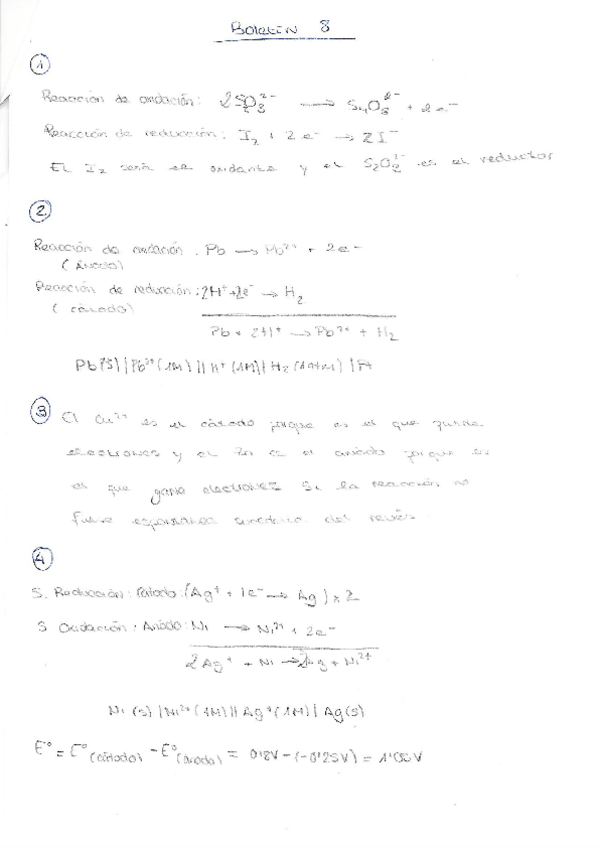 BOLETÍN 8
①
Reacción de oxidación: 2S₂O₃²⁻ → S₄O₆²⁻ + 2e⁻
Reacción de reducción: I₂ + 2e⁻ → 2I⁻
El I₂ sería el oxidante y el S₂O₃²⁻ es el reductor
②
Reacción de oxidación: Pb → Pb²⁺ + 2e⁻
(Ánodo)
Reacción de reducción: 2H⁺+2e⁻ → H₂
(cátodo)
Pb + 2H⁺ → Pb²⁺ + H₂
Pb(s) | Pb²⁺(1M) || H⁺(1M) | H₂(1atm) | Pt
③ El Cu²⁺ es el cátodo porque es el que pierde
electrones y el Zn es el ánodo porque es
el que gana electrones Si la reacción no
fuese espontánea del revés.
④
S. Reducción: Cátodo: (Ag⁺ + 1e⁻ → Ag) x 2
S Oxidación: Ánodo: Ni → Ni²⁺ + 2e⁻
2Ag⁺ + Ni → 2Ag + Ni²⁺
Ni(s) | Ni²⁺(1M) || Ag⁺(1M) | Ag(s)
E° = E°(cátodo) - E°(ánodo) = 0'8V - (-0'25V) = 1'05V